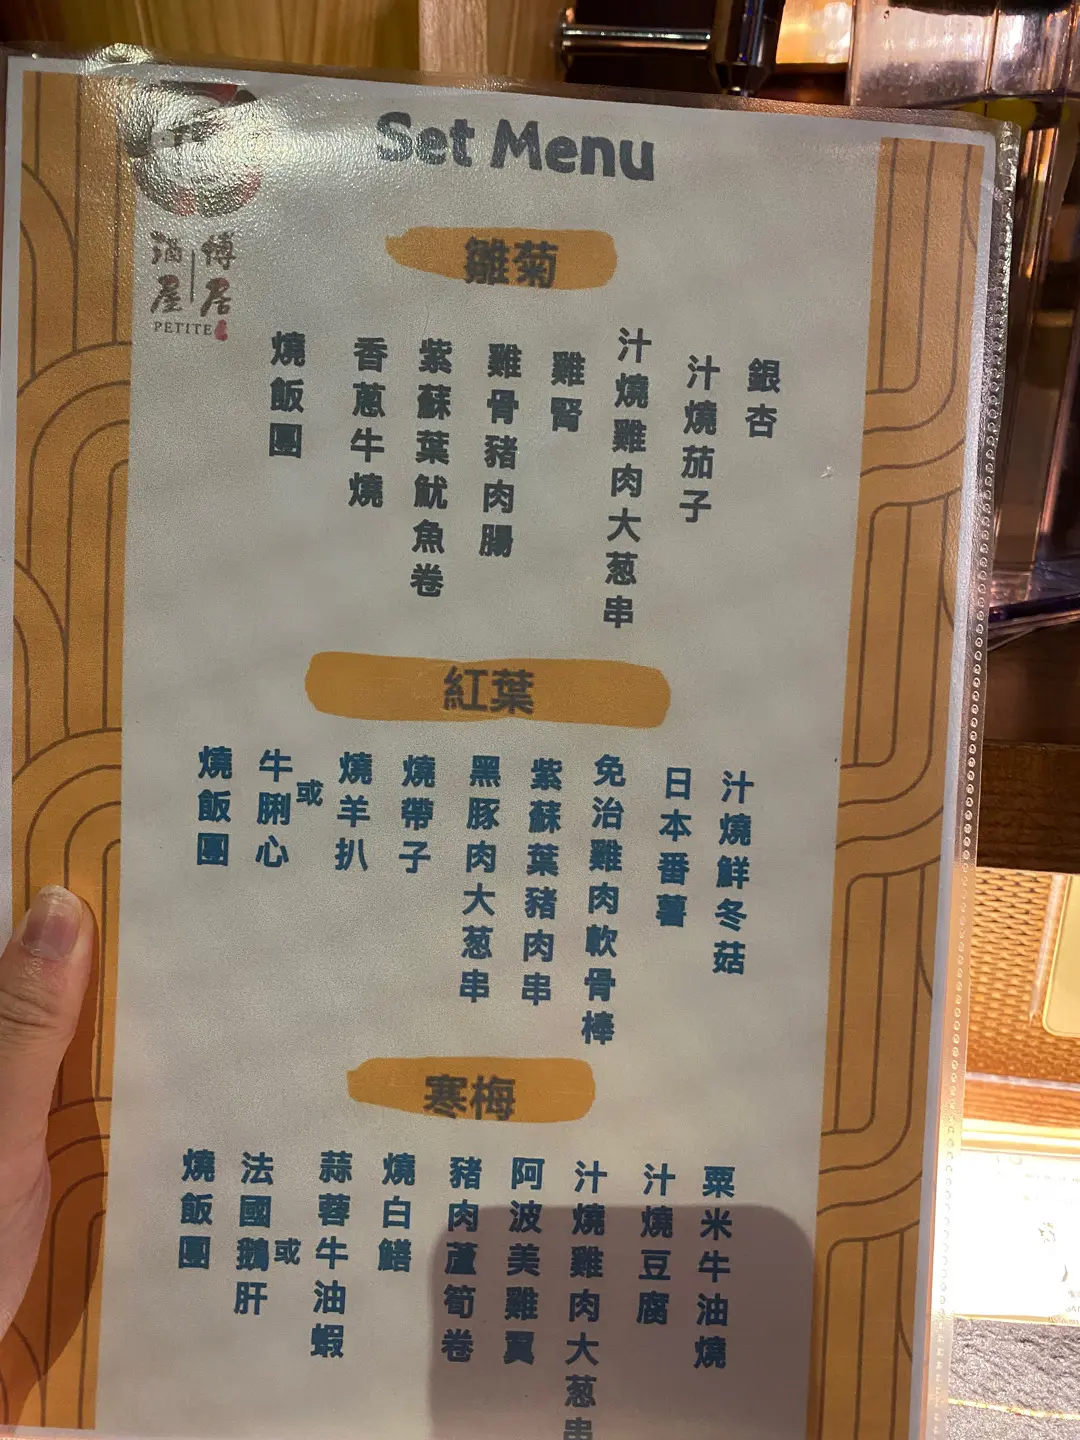 Set Menu
博居
酒屋
PETITE
雛菊
銀杏
汁燒茄子
汁燒雞肉大葱串
雞腎
雞骨豬肉腸
紫蘇葉魷魚卷
香蔥牛燒
燒飯團
紅葉
汁燒鮮冬菇
日本番薯
免治雞肉軟骨棒
紫蘇葉豬肉串
黑豚肉大葱串
燒帶子
燒羊扒
或
牛脷心
燒飯團
寒梅
粟米牛油燒
汁燒豆腐
汁燒雞肉大葱串
阿波美雞翼
豬肉蘆筍卷
燒白鱔
蒜蓉牛油蝦
或
法國鵝肝
燒飯團